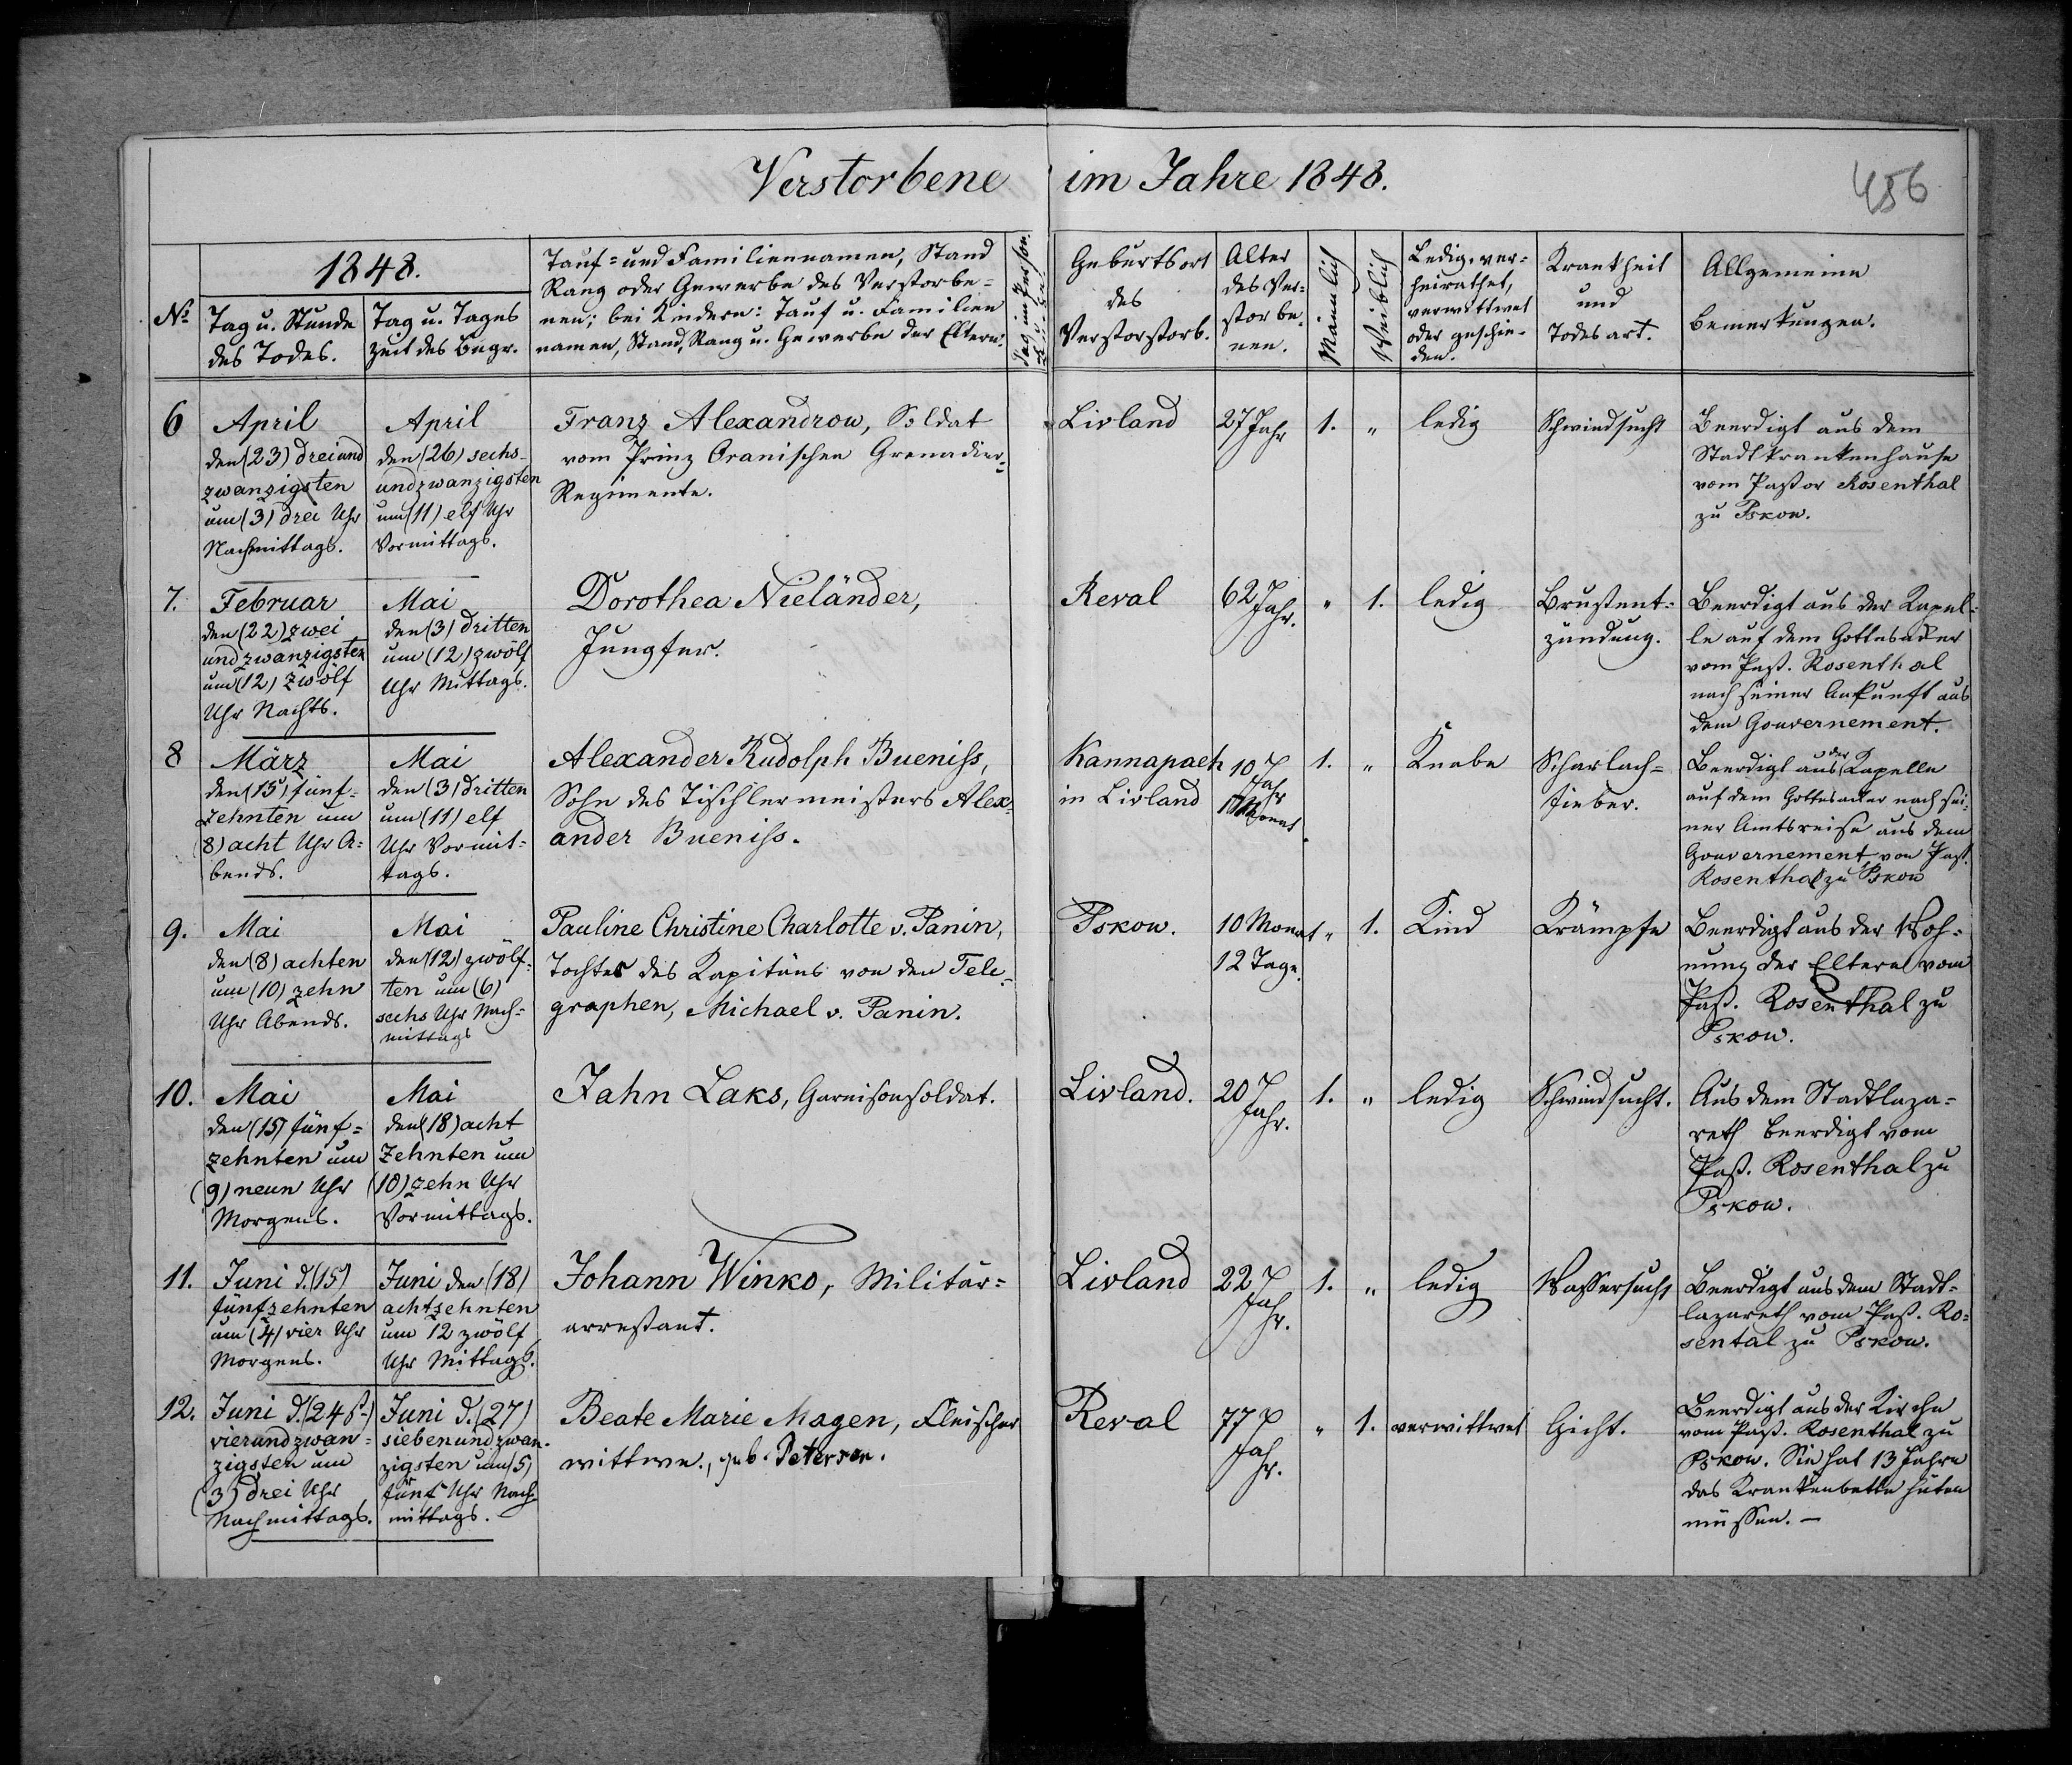 Verstorbene im Jahre 1848.
486
1848.
№
Tag u. Stunde
des Todes.
Tag u. Tages
zeit des Begr.
Tauf= und Familiennamen, Stand
Rang oder Gewerbe des Verstorbe=
nen; bei Kindern: Tauf u. Familien
namen, Stand, Rang u. Gewerbe der Eltern.
Geburtsort
des
Verstorstorb.
Alter
des Ver=
storbe
nen.
Männlich
Weiblich
Ledig, ver=
heirathet,
verwittwet
oder geschie=
den.
Krankheit
und
Todesart.
Allgemeine
Bemerkungen.
6
April
den (23) dreiund
zwanzigsten
um (3) drei Uhr
Nachmittags.
April
den (26) sechs=
undzwanzigsten
um (11) elf Uhr
Vormittags.
Franz Alexandrow, Soldat
vom Prinz Oranischen Grenadier=
Regimente.
Livland
27 Jahr
1.
"
ledig
Schwindsucht
Beerdigt aus dem
Stadtkrankenhause
vom Pastor Rosenthal
zu Pskow.
7.
Februar
den (22) zwei
undzwanzigsten
um (12) zwölf
Uhr Nachts.
Mai
den (3) dritten
um (12) zwölf
Uhr Mittags.
Dorothea Nieländer,
Jungfer.
Reval
62 Jahr.
"
1.
ledig
Brustent=
zündung.
Beerdigt aus der Kapel=
le auf dem Gottesacker
vom Past. Rosenthal
nach seiner Ankunft aus
dem Gouvernement.
8
März
den (15) fünf=
zehnten um
(8) acht Uhr A=
bends.
Mai
den (3) dritten
um (11) elf
Uhr Vormit=
tags.
Alexander Rudolph Bueniss,
Sohn des Tischlermeisters Alex=
ander Bueniss.
Kannapaeh
in Livland
10 Jahr
Monat
1.
"
Knabe
Scharlach=
fieber.
Beerdigt aus der Kapelle
auf dem Gottesacker nach sei=
ner Amtsreise aus dem
Gouvernement von Past.
Rosenthal zu Pskow
9.
Mai
den (8) achten
um (10) zehn
Uhr Abends.
Mai
den (12) zwölf=
ten um (6)
sechs Uhr Nach=
mittags
Pauline Christine Charlotte v. Panin,
Tochter des Kapitäns von den Tele=
graphen, Michael v. Panin.
Pskow.
10 Monat
12 Tage.
"
1.
Kind
Krämpfe
Beerdigt aus der Woh=
nung der Eltern vom
Past. Rosenthal zu
Pskow.
10.
Mai
den (15) fünf=
zehnten um
(9) neun Uhr
Morgens.
Mai
den (18) acht
zehnten um
(10) zehn Uhr
Vormittags.
Jahn Laks, Garnisonsoldat.
Livland.
20 Jahr.
1.
"
ledig
Schwindsucht.
Aus dem Stadtlaza=
reth beerdigt vom
Past. Rosenthal zu
Pskow.
11.
Juni d. (15)
fünfzehnten
um (4) vier Uhr
Morgens.
Juni den (18)
achtzehnten
um 12 zwölf
Uhr Mittags.
Johann Winko, Militär=
arrestant.
Livland
22 Jahr.
1.
"
ledig
Wassersucht
Beerdigt aus dem Stadt=
lazareth vom Past. Ro=
sental zu Pskow.
12.
Juni d. (24st.)
vierundzwan=
zigsten um
(3) drei Uhr
Nachmittags.
Juni d. (27)
siebenundzwan=
zigsten um (5)
fünf Uhr Nach=
mittags.
Beate Marie Magen, Fleischer
wittwe., geb. Petersen.
Reval
77 Jahr.
"
1.
verwittwet
Gicht.
Beerdigt aus der Kirche
vom Past. Rosenthal zu
Pskow. Sie hat 13 Jahre
das Krankenbette hüten
müssen. —